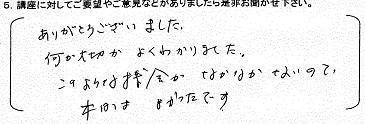 5. 講座に対してご要望やご意見などがありましたら是非お聞かせ下さい。
ありがとうございました。
何が大切か よくわかりました。
このような機会が なかなかないので、
本日は よかったです